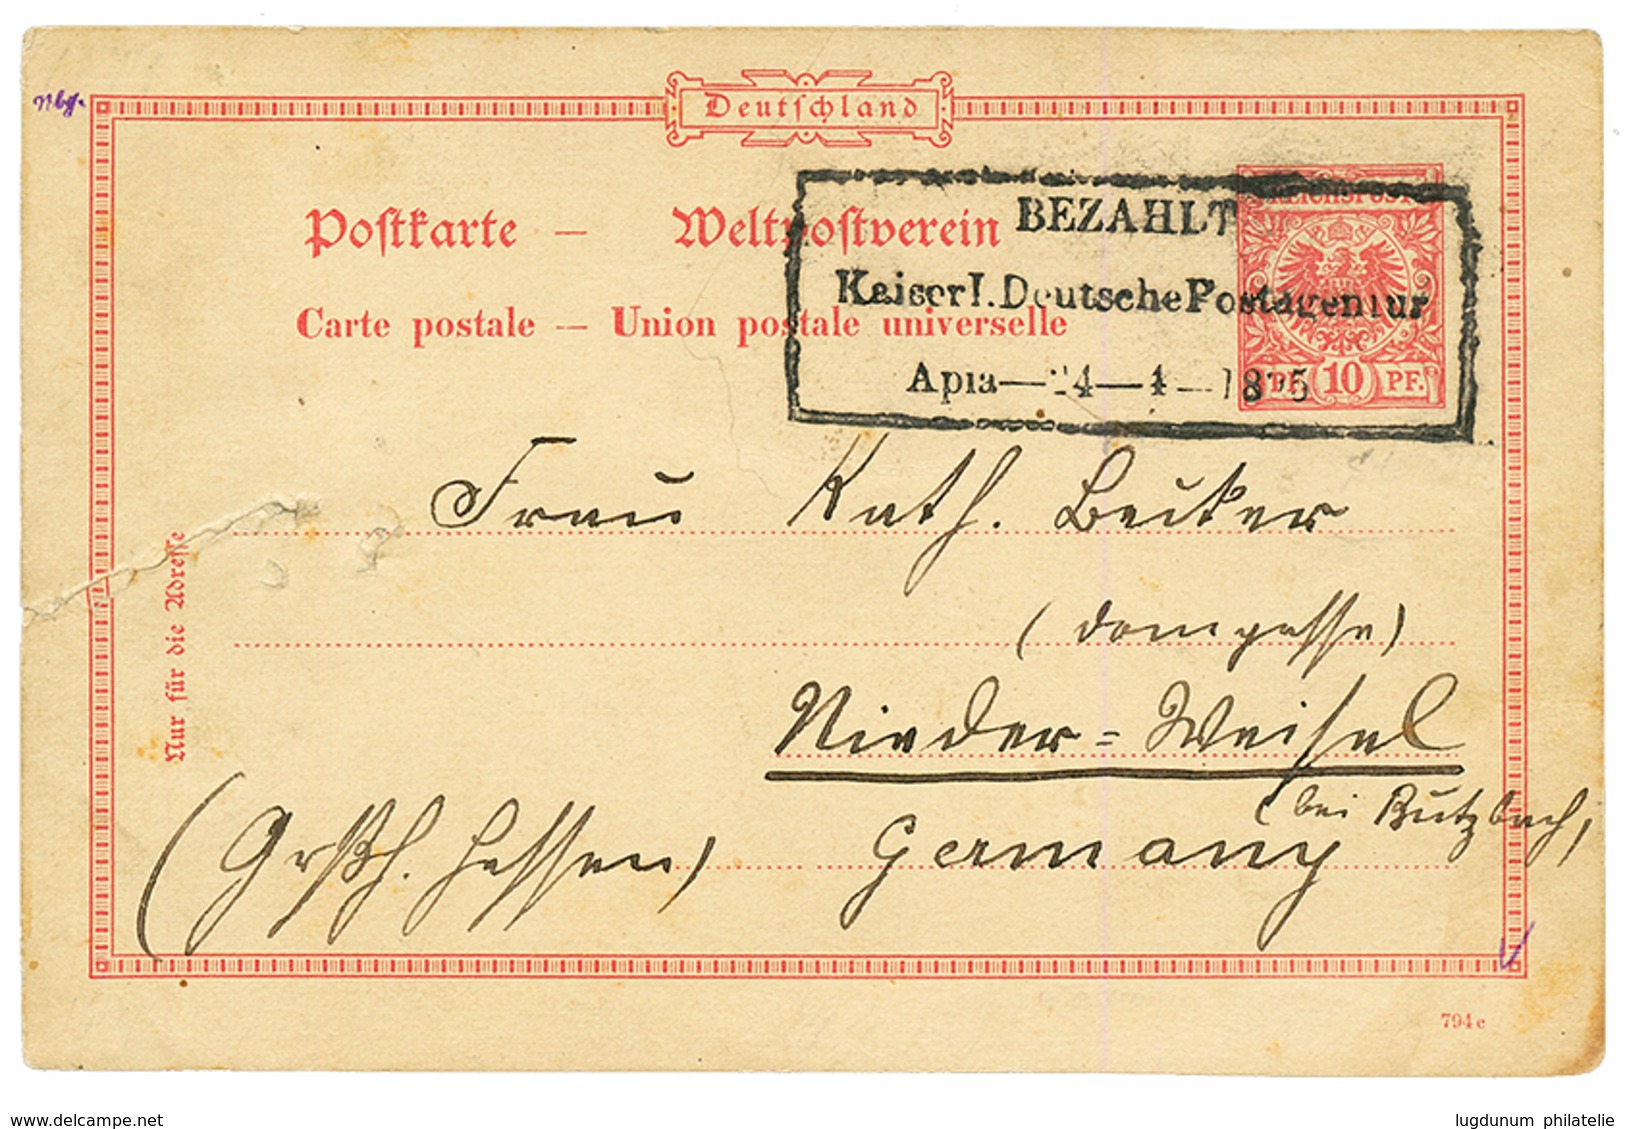 Nbg.
Deutschland
Postkarte — Weltpostverein
Carte postale — Union postale universelle
REICHSPOST
10 PF.
BEZAHLT
Kaiserl. Deutsche Postagentur
Apia — 24 — 4 — 1895
Nur für die Adresse
Frau Kath. Becker
(Domgasse)
Nieder=Weisel
(bei Butzbach)
(Grßh. Hessen) Germany
794e
delcampe.net
lugdunum philatelie